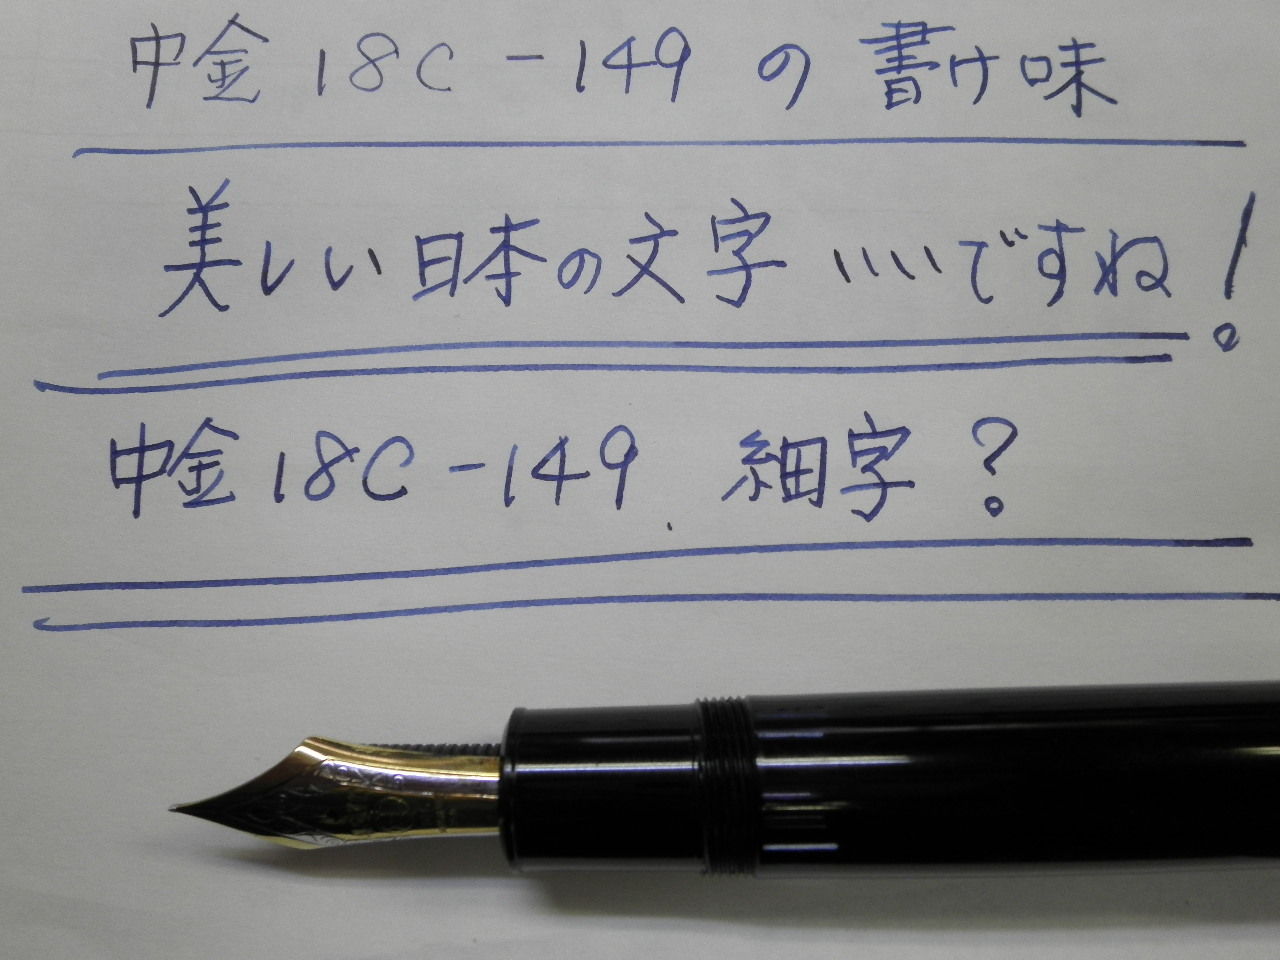 中金18C-149の書け味
美しい日本の文字、、、、ですね!
中金18C-149 細字?